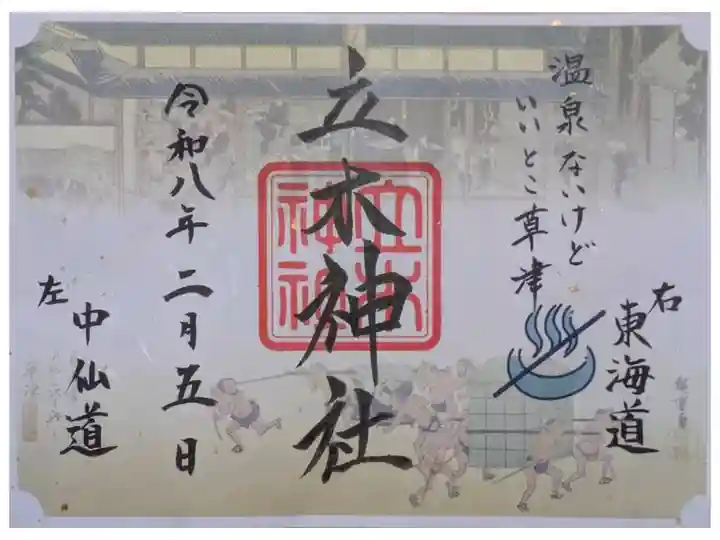 右
東海道
温泉ないけど
いいとこ草津
立木神社
立木
神社
令和八年二月五日
左
中仙道